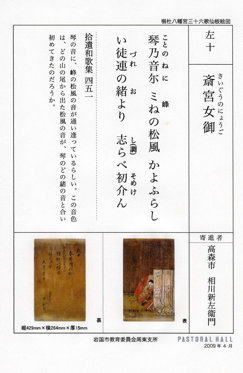 楊柱八幡宮三十六歌仙板絵図
左十
さいぐうのにょうご
斎宮女御
寄進者
高森市 相川新左衛門
ことのねに 峰
琴乃音尓 ミねの松風 かよふらし
づれ お (調) そめけ
い徒連の緒より 志らべ初介ん
拾遺和歌集 四五一
琴の音に、峰の松風の音が通い合っているらしい。この音色
は、どの山の尾から出た松風の音が、琴のどの緒の音と合い
初めてきたのだろうか。
表
裏
縦429mm×横264mm×厚15mm
岩国市教育委員会周東支所
PASTORAL HALL
2009年4月